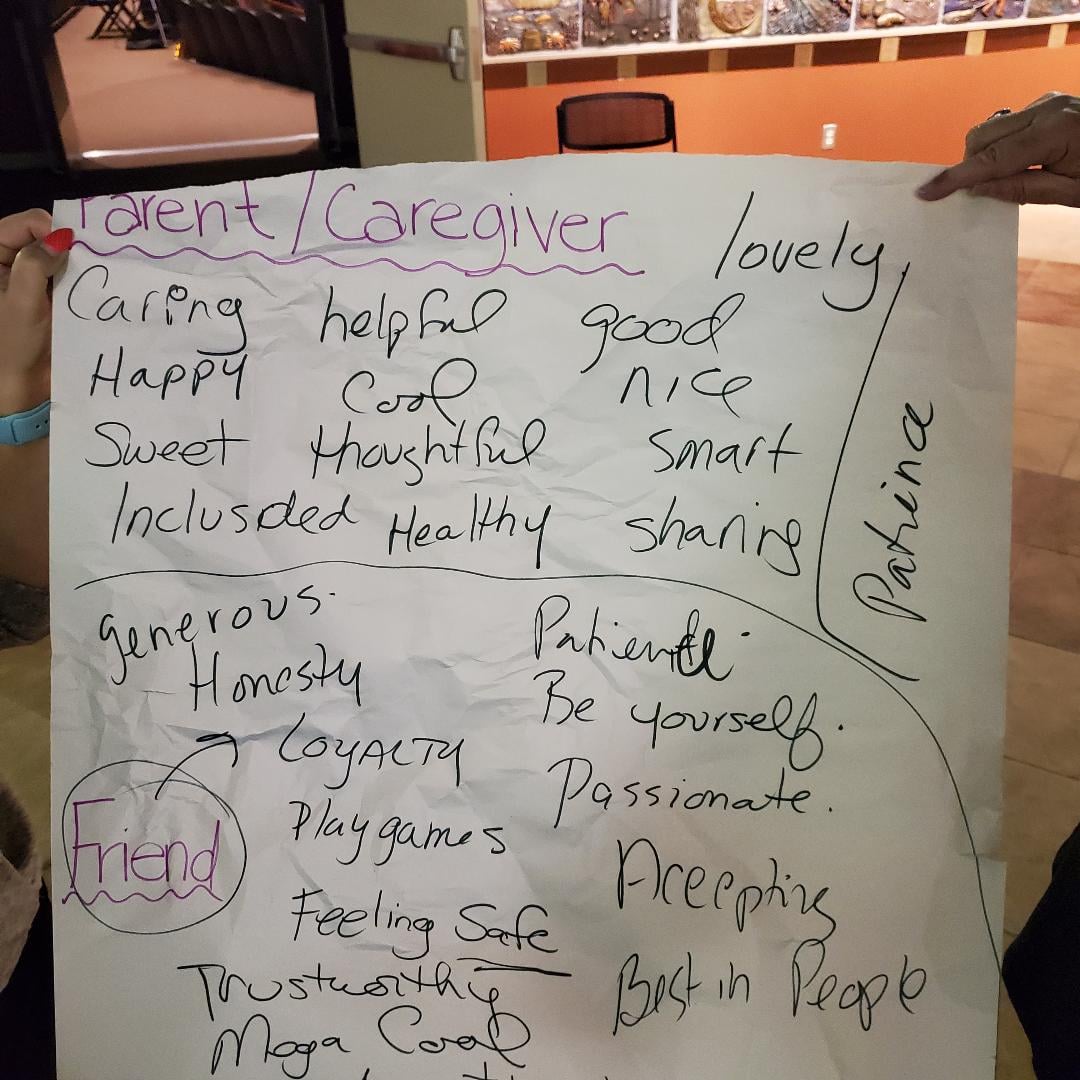 Parent/Caregiver
lovely
Caring helpful good
Happy Cool nice
Sweet thoughtful Smart
Inclusded Healthy sharing
Patience
generous.
Honesty
LOYALTY
Play games
Feeling Safe
Trustworthy
Mega Cool
Friend
Patient
Be yourself.
Passionate.
Accepting
Best in People